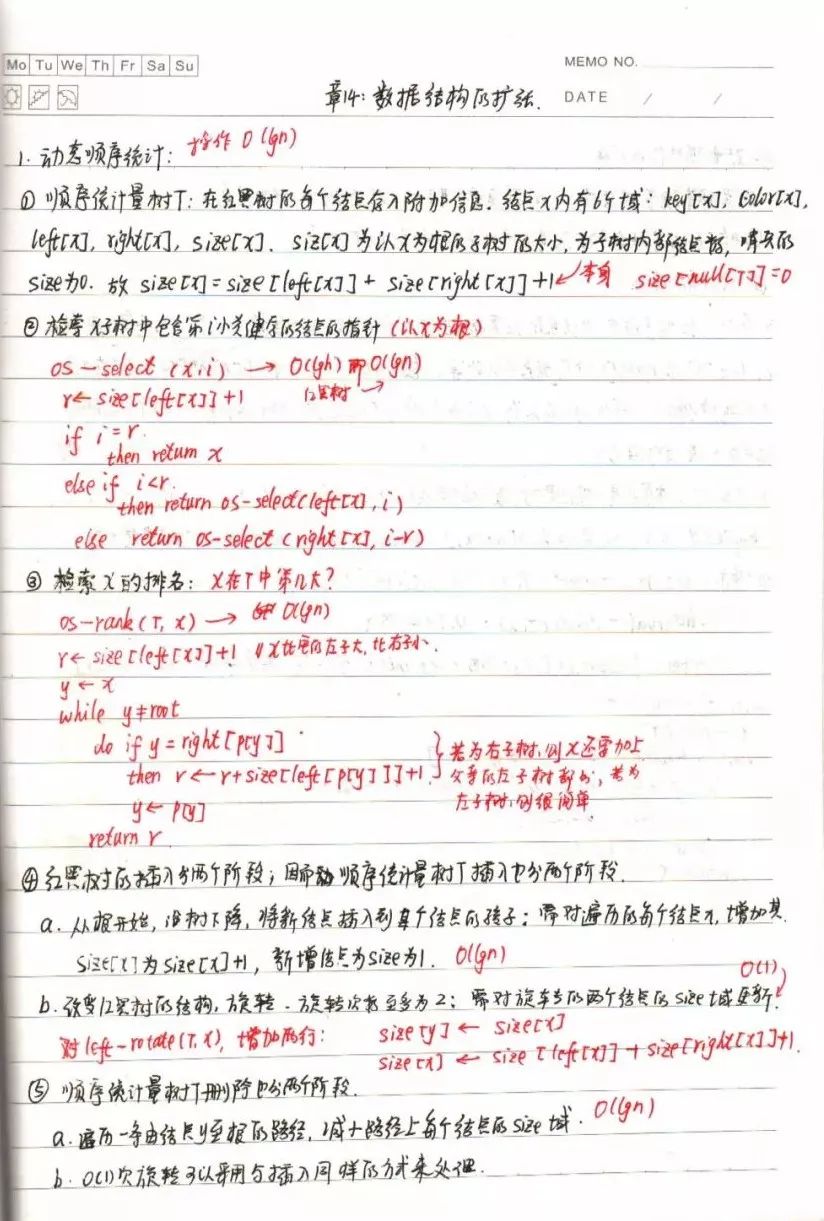 Mo Tu We Th Fr Sa Su
MEMO NO.
章14: 数据结构的扩张.
DATE / /
1. 动态顺序统计: 操作 O(lgn)
① 顺序统计量树T: 在红黑树的每个结点含入附加信息. 结点x内有6个域: key[x], color[x],
left[x], right[x], size[x]. siz[x]为以x为根的子树的大小, 为子树内部结点数, 哨兵的
size为0. 故 size[x] = size[left[x]] + size[right[x]] +1 ↙本身 size[null[T]]=0
② 检索x子树中包含第i小关键字的结点的指针 (以x为根)
os-select (x,i) → O(gh) 即 O(gn)
红黑树
r← size[left[x]]+1
if i=r.
then return x
else if i<r.
then return os-select(left[x], i)
else return os-select (right[x], i-r)
③ 检索x的排名: x在T中第几大?
os-rank(T, x) → O(lgn)
r← size[left[x]]+1 // x比它的左子大, 比右子小.
y ← x
while y≠root
do if y = right[p[y]]
then r ← r+size[left[p[y]]]+1.
y← p[y]
return r
若为右子树, 则x还需加上
父亲的左子树部分, 若为
左子树, 则很简单.
④ 红黑树的插入分两个阶段; 因而 顺序统计量树T插入也分两个阶段.
a. 从根开始, 沿树下降, 将新结点插入到某个结点的孩子; 需对遍历的每个结点x, 增加其
size[x]为size[x]+1, 新增结点为size为1. O(lgn)
O(1)
b. 改变红黑树的结构, 旋转. 旋转次数至多为2; 需对旋转的两个结点的size域更新.
对left-rotate(T, x), 增加两行: size[y] ← size[x]
size[x] ← size [left[x]] + size[right[x]]+1.
⑤ 顺序统计量树T删除也分两个阶段.
a. 遍历一条由结点y至根的路径, 减小路径上每个结点的size域. O(lgn)
b. O(1)次旋转可以采用与插入同样的方式来处理.